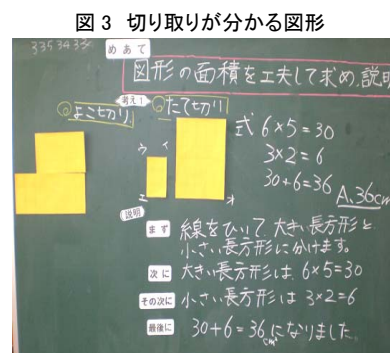 図3 切り取りが分かる図形
3353433
めあて
図形の面積を工夫して求め、説明
考え1
◎よこ切り
◎たて切り
ウ
イ
エ
オ
式 6×5=30
3×2=6
30+6=36
A.36cm
説明
まず 線をひいて、大きい長方形と
小さい長方形に分けます。
次に 大きい長方形は 6×5=30
その次に 小さい長方形は 3×2=6
最後に 30+6=36になりました。
cm²